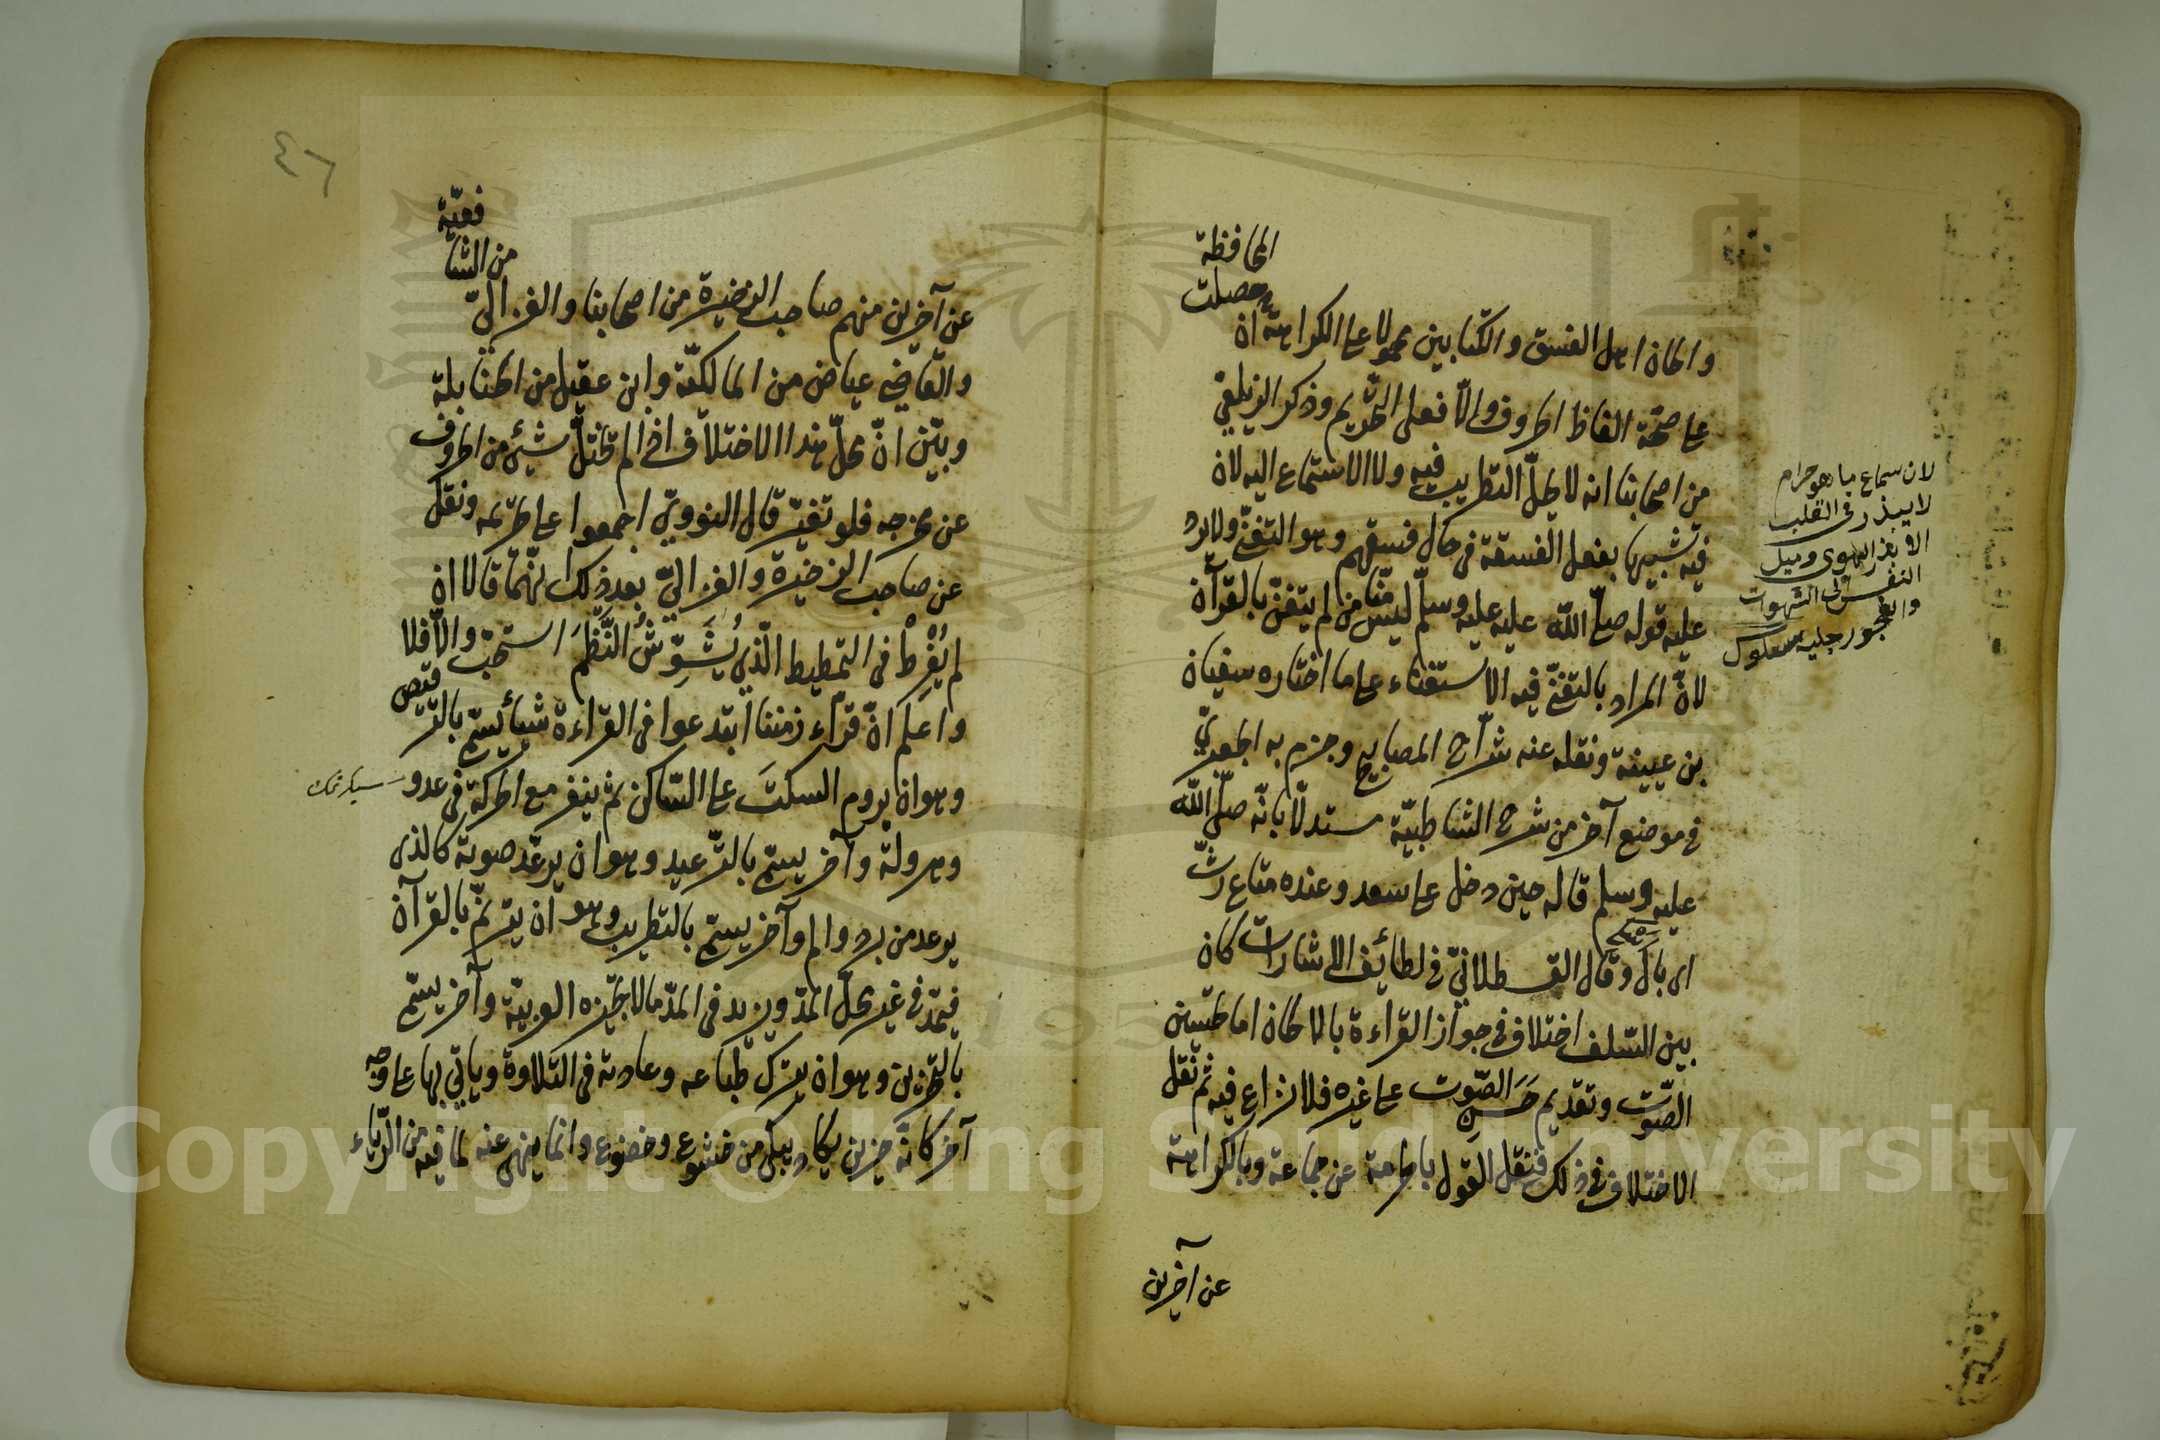 والحان اهل الفسق والكتابين محمولا على الكراهة ان حصلت المحافظة
على صحة الفاظ الحروف والا فعلى التحريم وذكر الزيلعي
من اصحابنا انه لا يحل التطريب فيه ولا الاستماع اليه لان
فيه تشبيها بفعل الفسقة في حال فسقهم وهو التغني ولا يرد
عليه قوله صلى الله عليه عليه وسلم ليس منا من لم يتغن بالقرآن
لان المراد بالتغني فيه الاستغناء على ما اختاره سفيان
بن عيينة ونقله عنه شراح المصابيح وجزم به الجعبري
في موضع آخر من شرح الشاطبية مستدلا بانه صلى الله
عليه وسلم قاله حين دخل على سعد وعنده متاع رث
اى بال وقال القسطلاني في لطائف الاشارات كان
بين السلف اختلاف في جواز القراءة بالالحان اما تحسين
الصوت وتقديم حسن الصوت على غيره فلا نزاع فيه ثم نقل
الاختلاف في ذلك فنقل القول بالحرمة عن جماعة وبالكراهة
عن آخرين
لان سماع ما هو حرام
لا يبذر في القلب
الا بذر الهوى وميل
النفس الى الشهوات
والفجور
٤٦
عن آخرين منهم صاحب الذخيرة من اصحابنا والغزالي من الشافعية
والقاضي عياض من المالكية وابن عقيل من الحنابلة
وبين ان محل هذا الاختلاف اذا لم تختل شيئ من الحروف
عن مخرجه فلو تغير قال النووي اجمعوا على تحريمه ونقل
عن صاحب الذخيرة والغزالي بعد ذلك انهما قالا ان
لم يُفْرِطْ في التمطيط الذي يُشَوِّشُ النَّظْمَ استحب والا فلا
واعلم ان قراء زمننا ابتدعوا في القراءة شيأ يسمى بالترقيص
وهو ان يروم السكت على الساكن ثم ينفر مع الحركة في عدو
وهرولة وآخر يسمى بالترعيد وهو ان يرعد صوته كالذى
يرعد من برد والم وآخر يسمى بالتطريب وهو ان يترنم بالقرآن
فيمد في غير محل المد ويزيد في المد ما لا تجيزه العربية وآخر يسمى
بالتحزين وهو ان يترك طباعه وعادته في التلاوة ويأتي بها على وجه
آخر كانه حزين يكاد يبكى من خشوع وخضوع وانما ينهى عنه لما فيه من الرياء